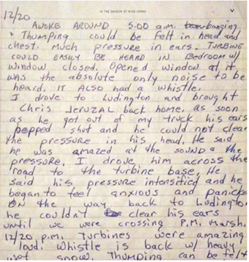 12/20
AWOKE AROUND 5:00 a.m.
Thumping could be felt in head and
chest. Much pressure in ears. TURBINE
COULD EASILY BE HEARD IN BEDROOM W/
WINDOW CLOSED. Opened window at it
was the absolute only noise to be
heard. IT ALSO had A WHISTLE.
I drove to Ludington and brought
Chris JENUZAL back home. As soon
as he got out of my truck his ears
popped shut and he could not clear
the pressure in his head, he said
he was amazed at the sound & the
pressure. I drove him across the
road to the turbine base. He
said his pressure intensified and he
began to feel anxious and panicky
ON the way back to Ludington
he couldn't clear his ears
until we were crossing P.M. Marsh.
12/20 p.m. Turbines were amazing
loud. Whistle is back w/ heavy/
wet snow. Thumping can be felt